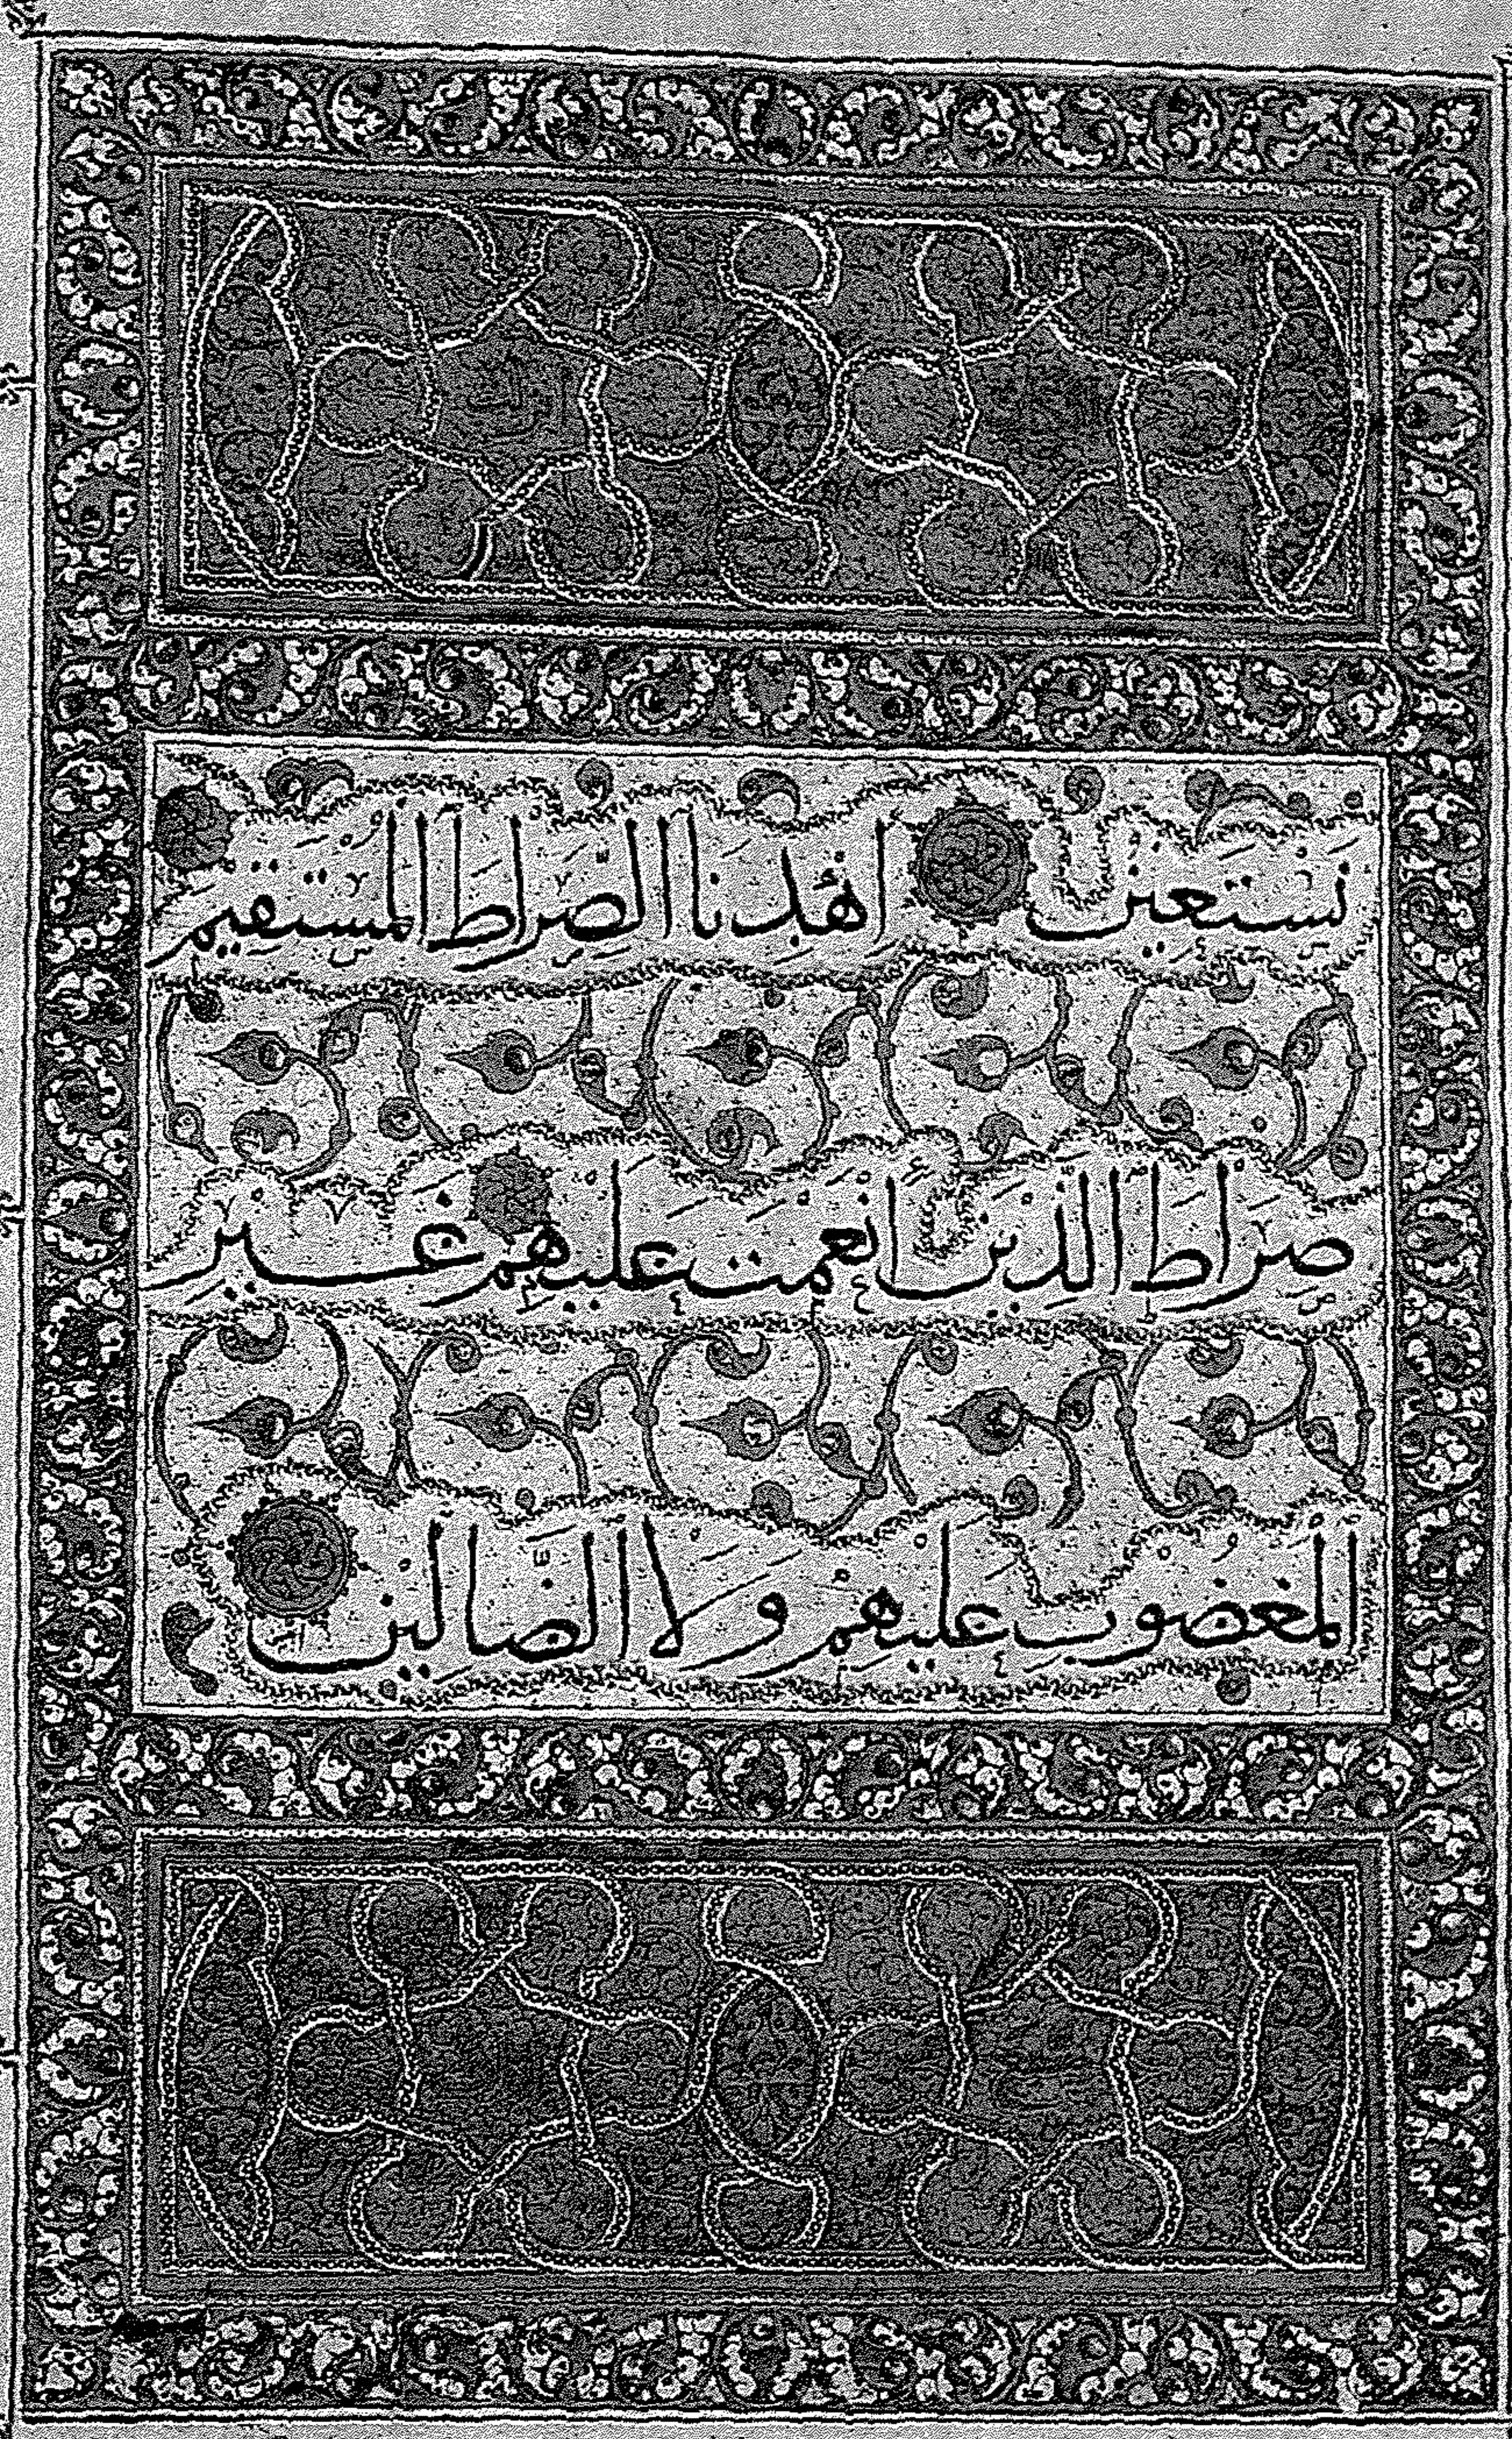 نستعين اهدنا الصراط المستقيم
صراط الذين انعمت عليهم غير
المغضوب عليهم ولا الضالين